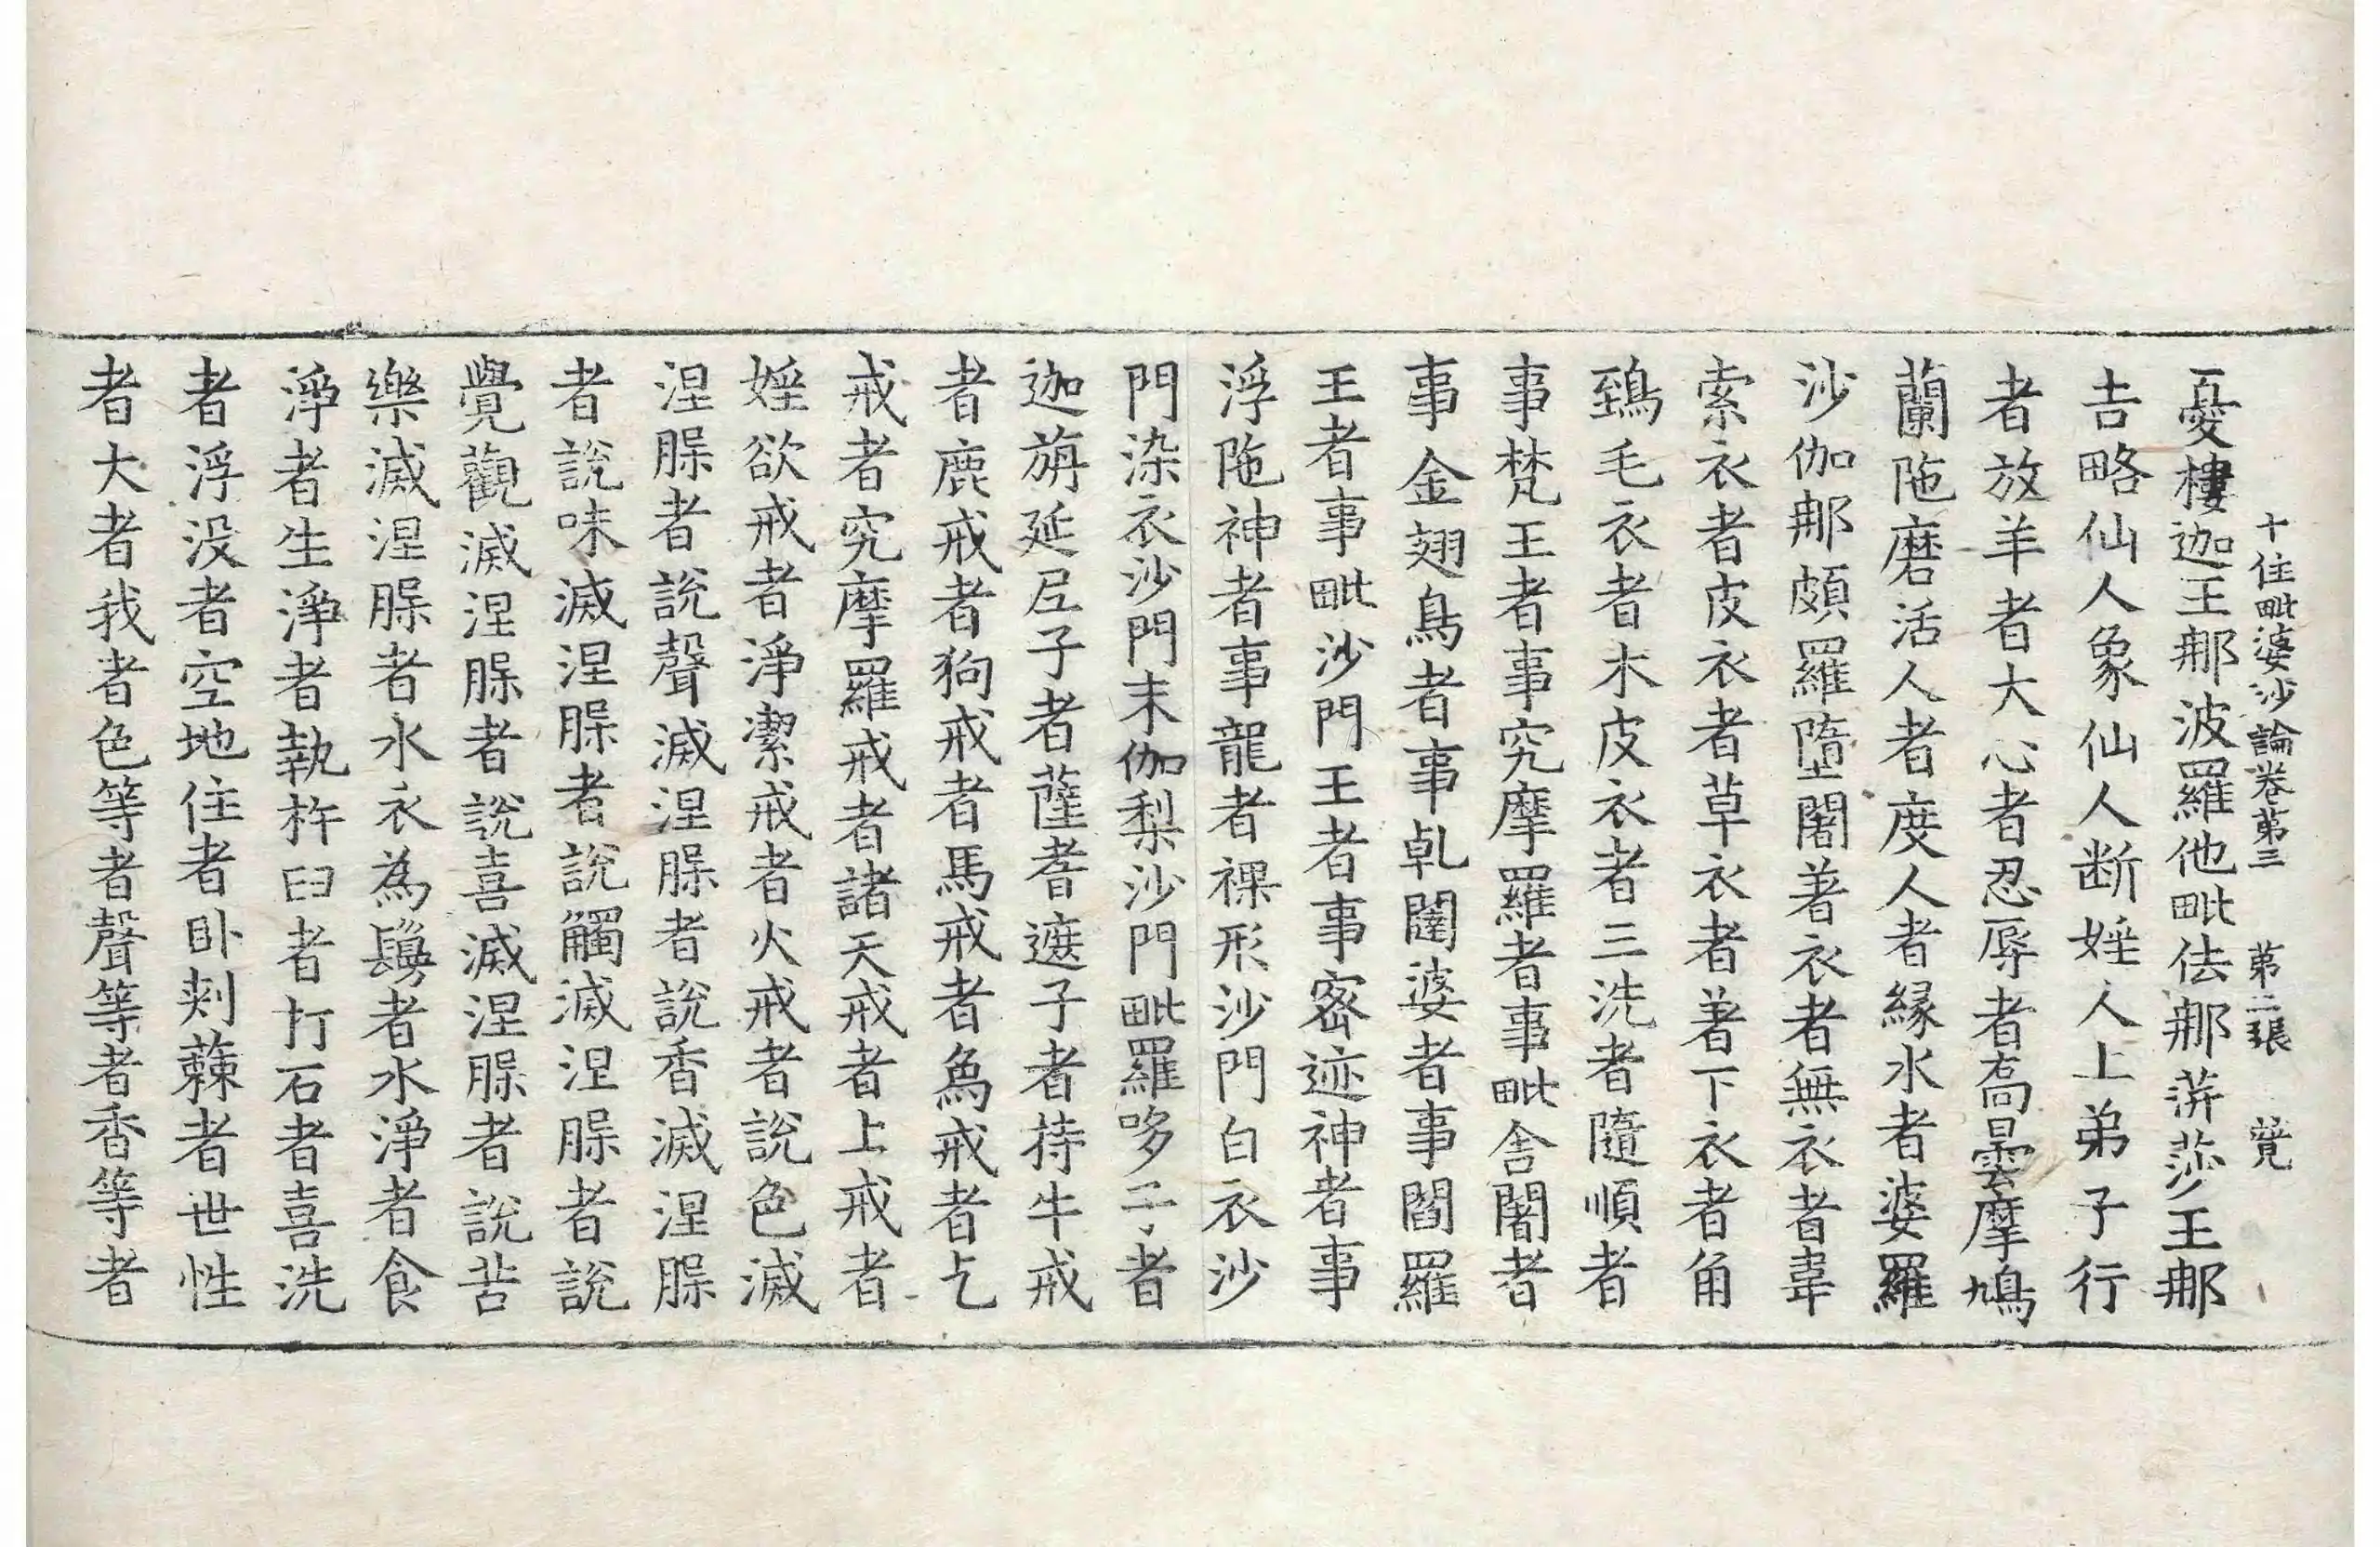 十住毗婆沙論卷第三 第二張 覽
憂樓迦王那波羅他毗佉那蓱莎王那
吉略仙人象仙人断婬人上弟子行
者放羊者大心者忍辱者喬曇摩鳩
蘭陁磨活人者度人者緣水者婆羅
沙伽那頗羅墮闍著衣者無衣者韋
索衣者皮衣者草衣者著下衣者角
鵄毛衣者木皮衣者三洗者隨順者
事梵王者事究摩羅者事毗舍闍者
事金翅鳥者事乹闥婆者事閻羅
王者事毗沙門王者事宻迹神者事
浮陁神者事龍者裸形沙門白衣沙
門染衣沙門末伽梨沙門毗羅哆子者
迦旃延尼子者薩耆遮子者持牛戒
者鹿戒者狗戒者馬戒者象戒者乞
戒者究摩羅戒者諸天戒者上戒者
婬欲戒者淨潔戒者火戒者說色滅
涅槃者說聲滅涅槃者說香滅涅槃
者說味滅涅槃者說觸滅涅槃者說
覺觀滅涅槃者說喜滅涅槃者說苦
樂滅涅槃者水衣為鬘者水淨者食
淨者生淨者執杵臼者打石者喜洗
者浮没者空地住者卧刺蕀者世性
者大者我者色等者聲等者香等者